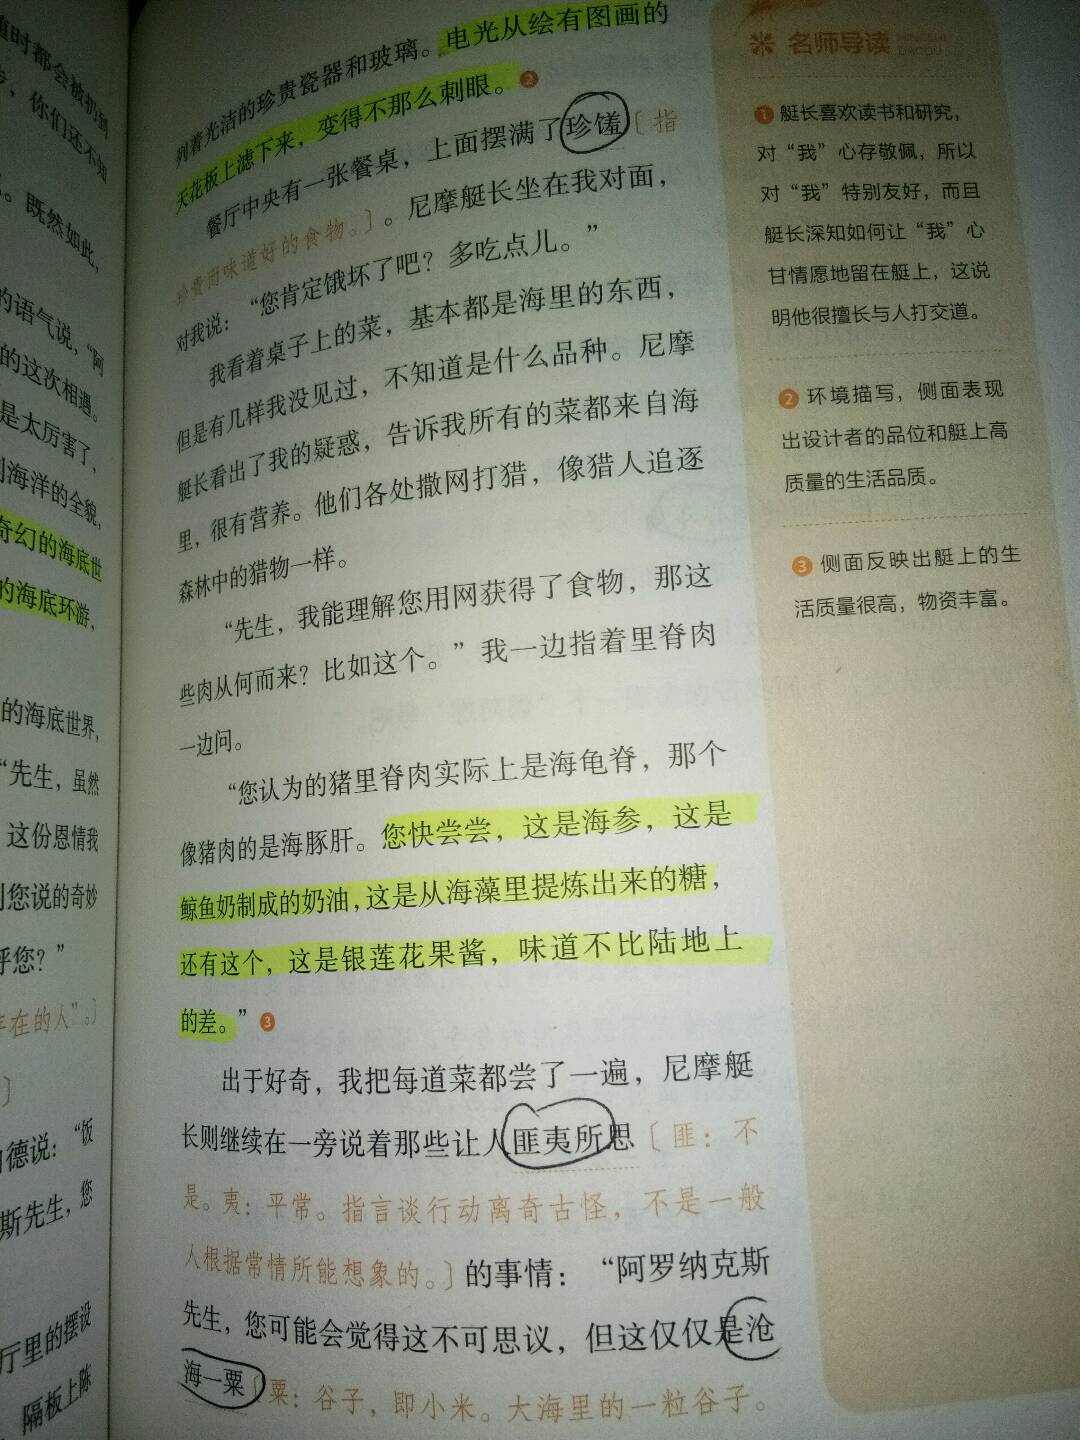 随时都会被扔到
你们还不知
。既然如此，
的语气说，“阿
的这次相遇。
是太厉害了，
海洋的全貌，
奇幻的海底世
的海底环游，
的海底世界，
“先生，虽然
这份恩情我
您说的奇妙
呼您？”
存在的人”。〕
〕
德说：“饭
斯先生，您
厅里的摆设
隔板上陈
列着光洁的珍贵瓷器和玻璃。电光从绘有图画的
天花板上滤下来，变得不那么刺眼。❷
餐厅中央有一张餐桌，上面摆满了珍馐〔指
珍贵而味道好的食物。〕。尼摩艇长坐在我对面，
对我说：“您肯定饿坏了吧？多吃点儿。”
我看着桌子上的菜，基本都是海里的东西，
但是有几样我没见过，不知道是什么品种。尼摩
艇长看出了我的疑惑，告诉我所有的菜都来自海
里，很有营养。他们各处撒网打猎，像猎人追逐
森林中的猎物一样。
“先生，我能理解您用网获得了食物，那这
些肉从何而来？比如这个。”我一边指着里脊肉
一边问。
“您认为的猪里脊肉实际上是海龟脊，那个
像猪肉的是海豚肝。您快尝尝，这是海参，这是
鲸鱼奶制成的奶油，这是从海藻里提炼出来的糖，
还有这个，这是银莲花果酱，味道不比陆地上
的差。”❸
出于好奇，我把每道菜都尝了一遍，尼摩艇
长则继续在一旁说着那些让人匪夷所思〔匪：不
是。夷：平常。指言谈行动离奇古怪，不是一般
人根据常情所能想象的。〕的事情：“阿罗纳克斯
先生，您可能会觉得这不可思议，但这仅仅是沧
海一粟〔粟：谷子，即小米。大海里的一粒谷子。
名师导读 MINGSHI
DAODU
❶ 艇长喜欢读书和研究，
对“我”心存敬佩，所以
对“我”特别友好，而且
艇长深知如何让“我”心
甘情愿地留在艇上，这说
明他很擅长与人打交道。
❷ 环境描写，侧面表现
出设计者的品位和艇上高
质量的生活品质。
❸ 侧面反映出艇上的生
活质量很高，物资丰富。